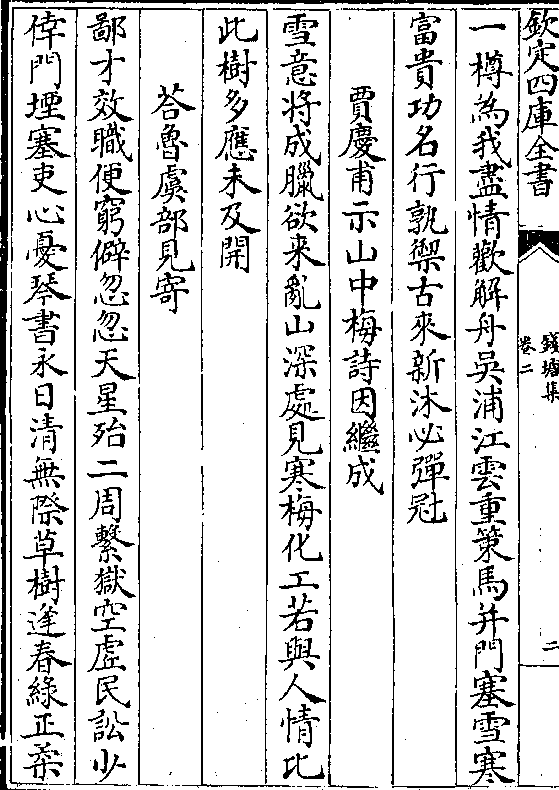 欽定四庫全書
錢塘集
卷二
二
一樽為我盡情歡解舟吳浦江雲重策馬并門塞雪寒
富貴功名行孰禦古來新沐必彈冠
賈慶甫示山中梅詩因繼成
雪意将成臘欲来亂山深處見寒梅化工若與人情比
此樹多應未及開
荅魯虞部見寄
鄙才效職便窮僻忽忽天星殆二周繫獄空虛民訟少
倖門堙塞吏心憂琴書永日清無際草樹逢春綠正柔